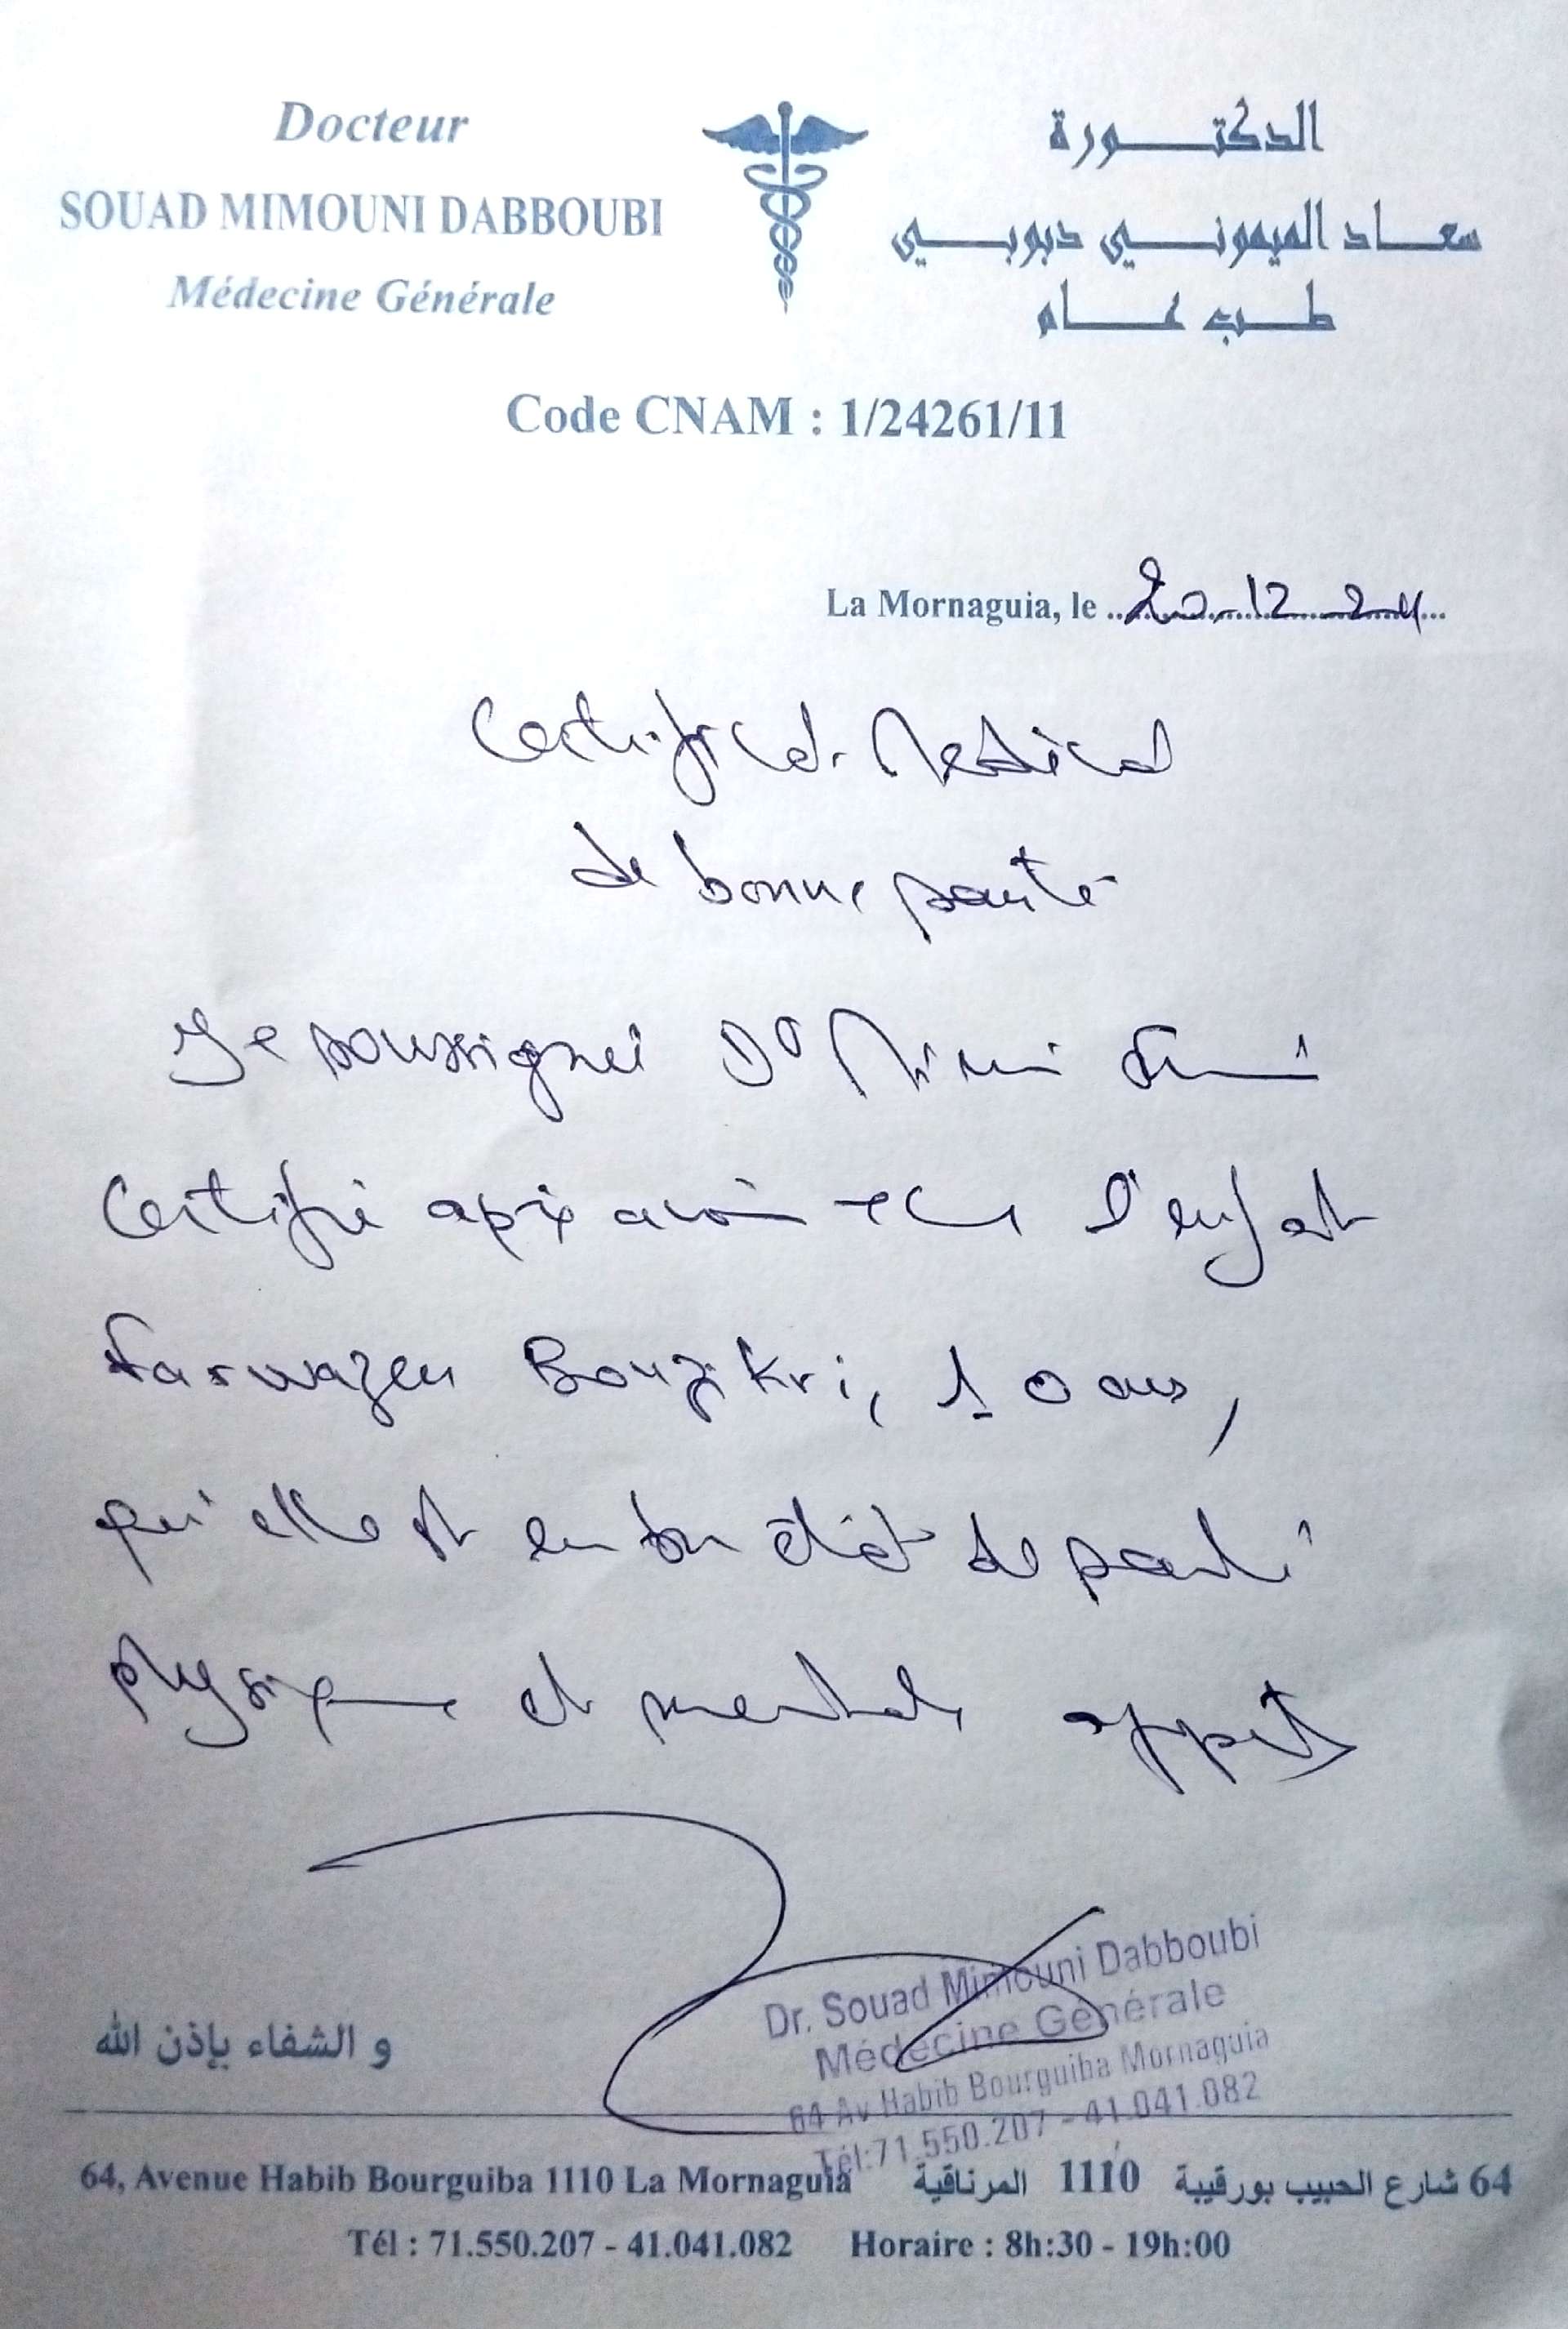 Docteur
SOUAD MIMOUNI DABBOUBI
Médecine Générale
الدكتورة
سعاد الميموني دبوبي
طب عام
Code CNAM : 1/24261/11
La Mornaguia, le 20.12.24
Certificat Médical
de bonne santé
Je soussigné Dr Mimouni
Certifie après avoir l'enfant
Bouzikri, 10 ans,
qu'elle est en bon état de santé
physique et mentale
و الشفاء بإذن الله
Dr. Souad Mimouni Dabboubi
Médecine Générale
64 Av Habib Bourguiba Mornaguia
Tél:71.550.207 - 41.041.082
64, Avenue Habib Bourguiba 1110 La Mornaguia
64 شارع الحبيب بورقيبة 1110 المرناقية
Tél : 71.550.207 - 41.041.082 Horaire : 8h:30 - 19h:00